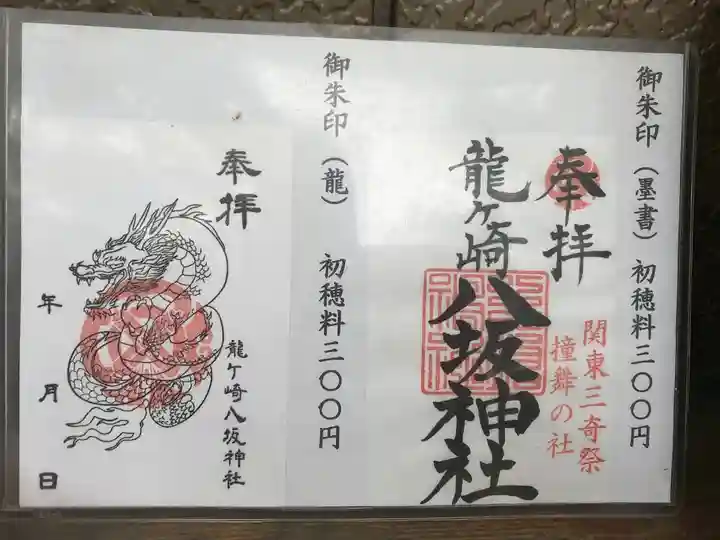 御朱印（墨書）　初穂料三〇〇円
奉拝
関東三奇祭
撞舞の社
龍ヶ崎八坂神社
御朱印（龍）　初穂料三〇〇円
奉拝
龍ケ崎八坂神社
年　月　日